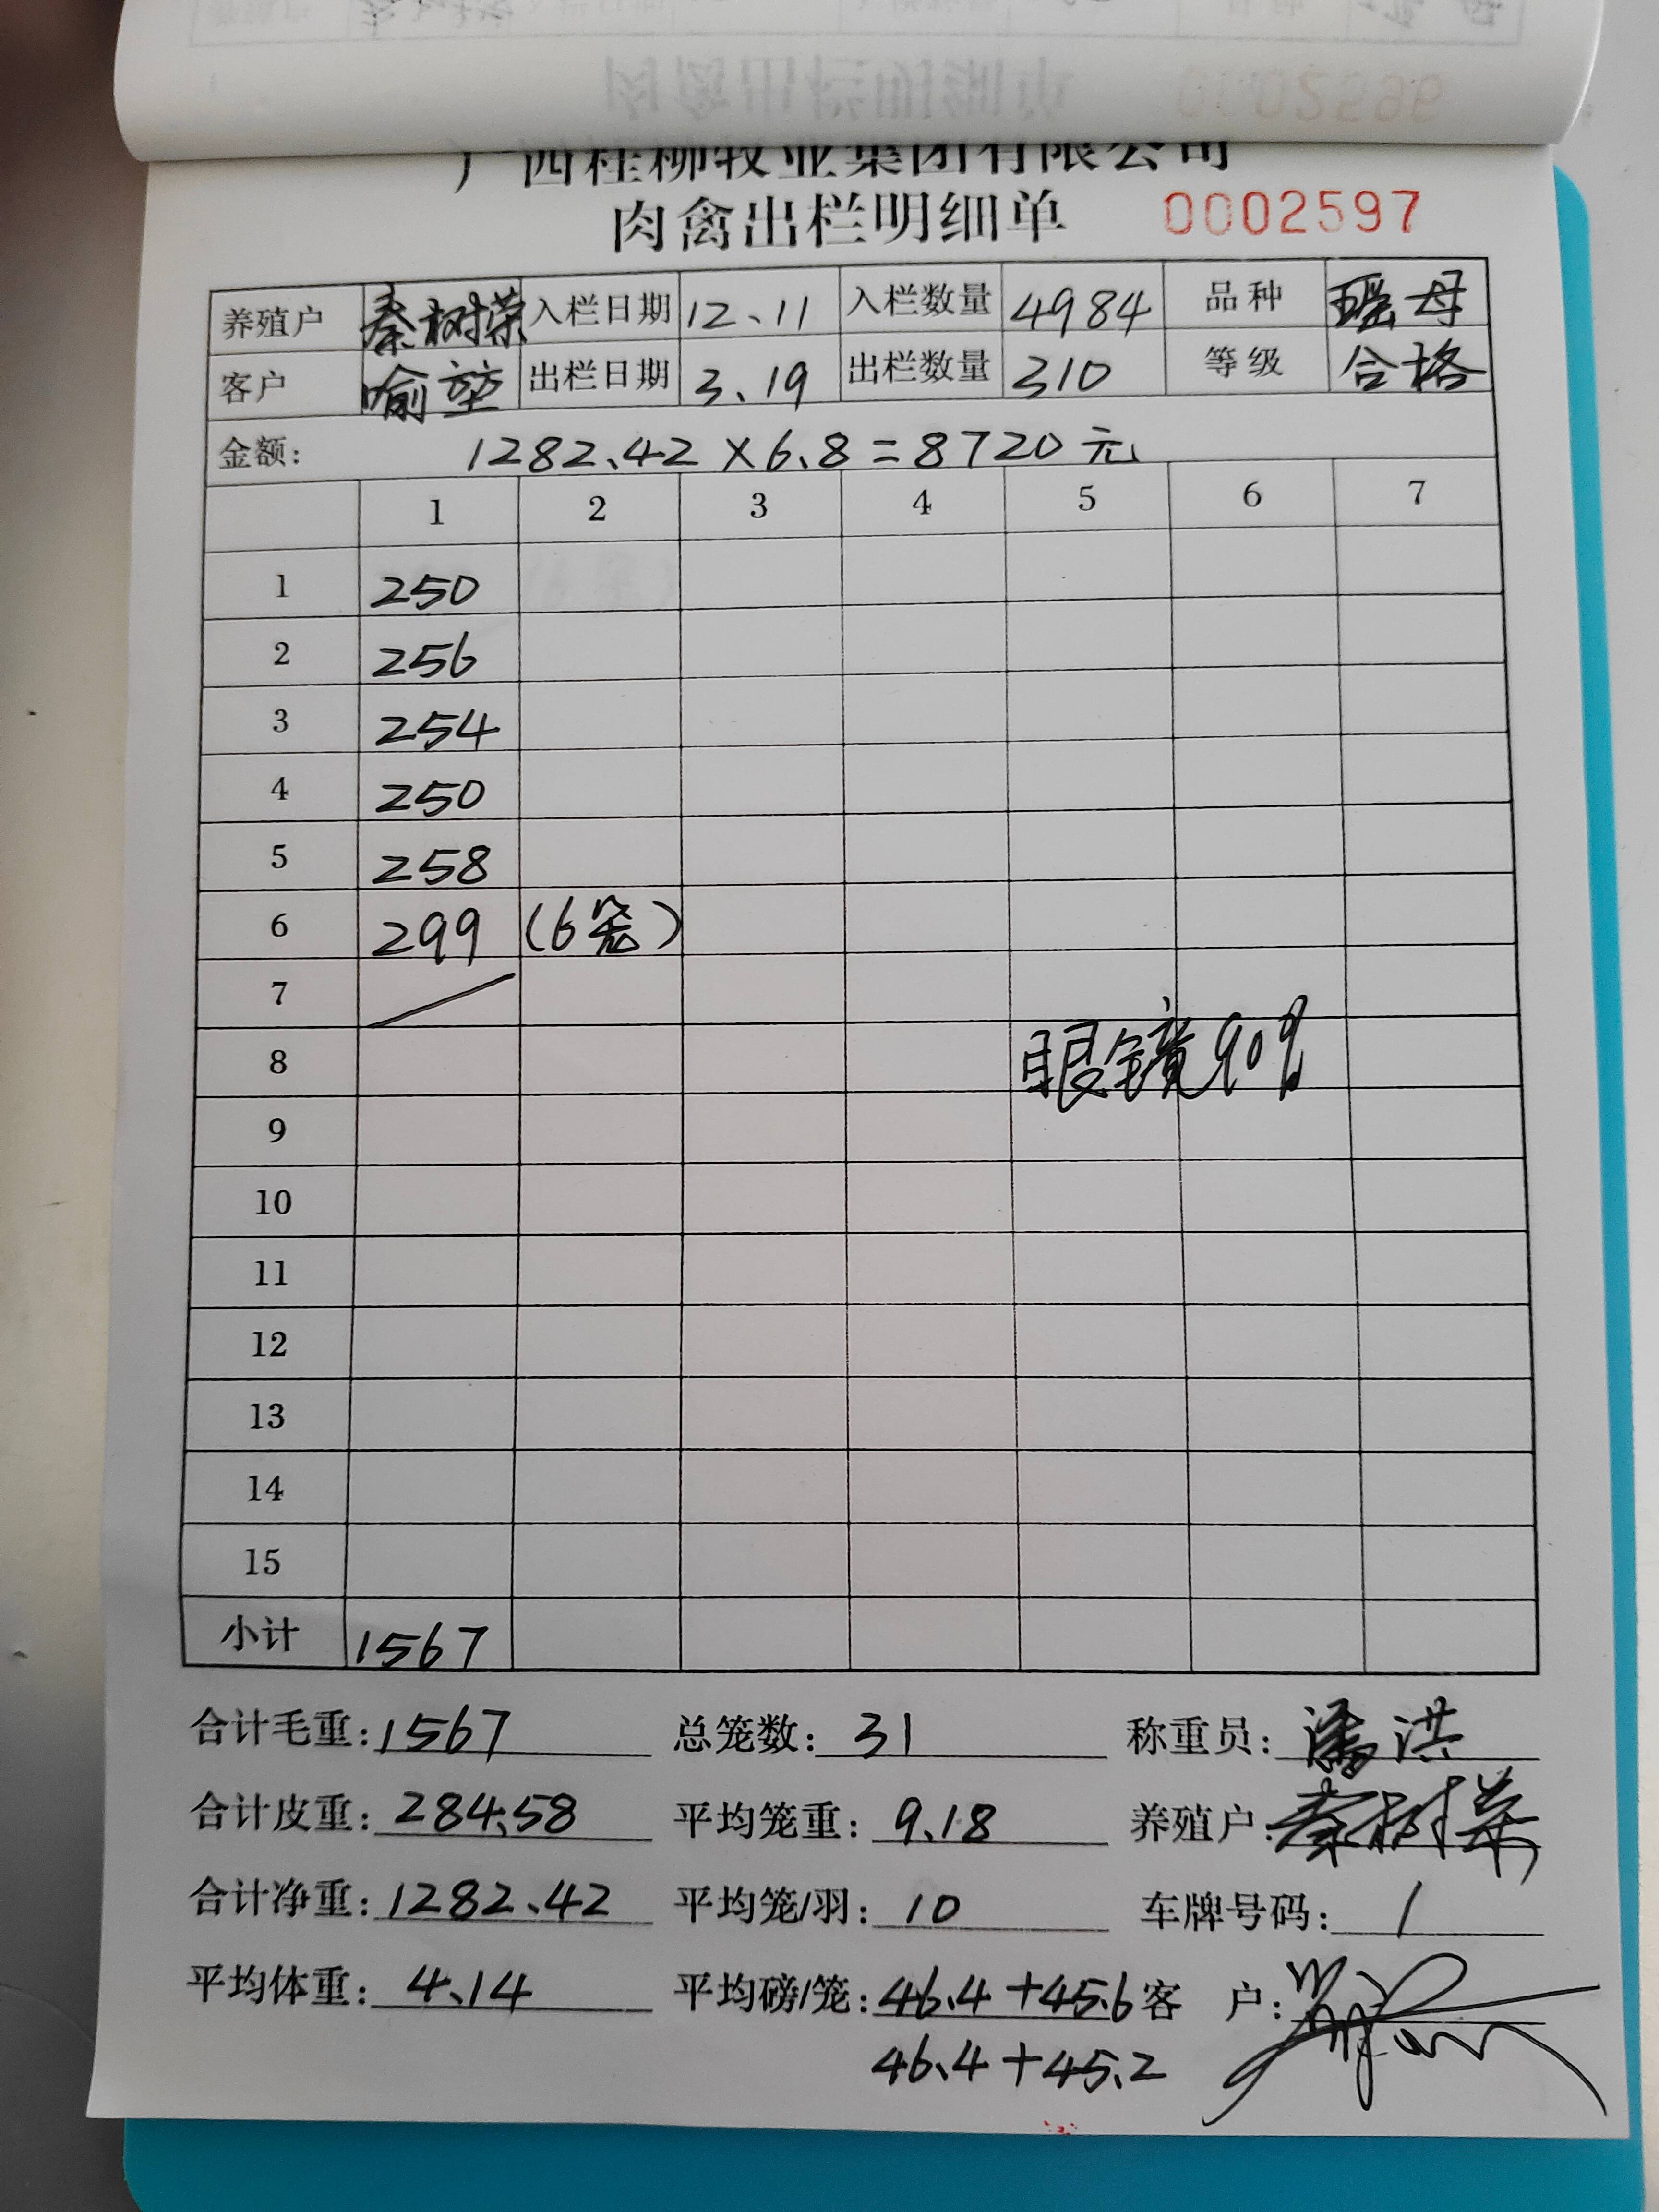 广西桂柳牧业集团有限公司
肉禽出栏明细单 0002597
养殖户 秦树荣 入栏日期 12、11 入栏数量 4984 品种 瑶母
客户 喻堃 出栏日期 3、19 出栏数量 310 等级 合格
金额: 1282、42 × 6、8 = 8720 元
1 2 3 4 5 6 7
1 250
2 256
3 254
4 250
5 258
6 299 (6笼)
7
8 眼镜90%
9
10
11
12
13
14
15
小计 1567
合计毛重: 1567 总笼数: 31 称重员: 潘洪
合计皮重: 284、58 平均笼重: 9、18 养殖户: 秦树荣
合计净重: 1282、42 平均笼/羽: 10 车牌号码: 1
平均体重: 4、14 平均磅/笼: 46、4 + 45、6 客 户:
46、4 + 45、2